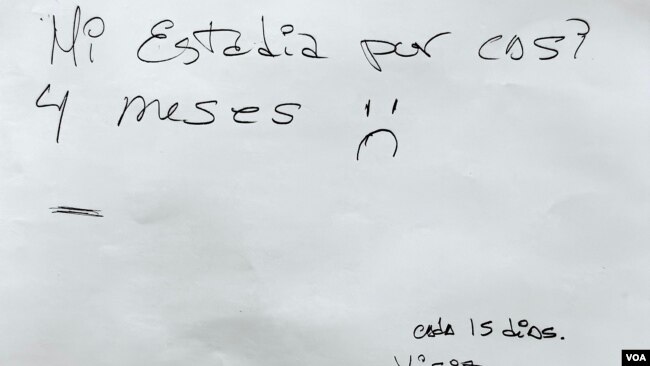 Mi Estadia por cos?
4 meses
cada 15 dias.
VOA